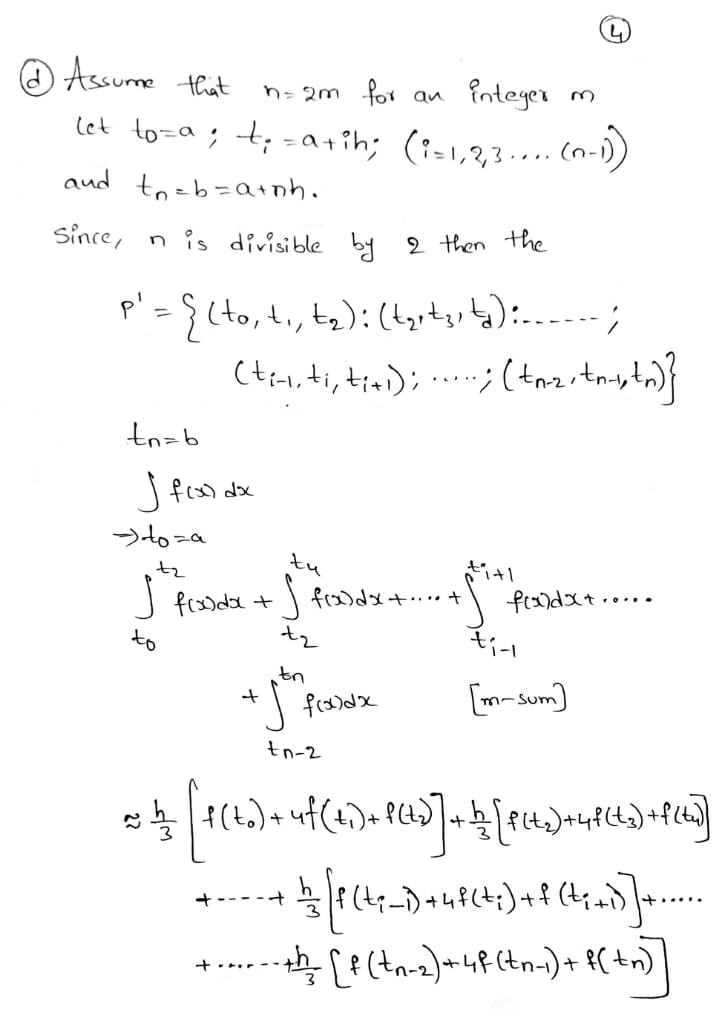 ④
ⓓ Assume that n=2m for an integer m
let to=a ; tᵢ = a+ih; (i=1,2,3.... (n-1))
and tₙ=b=a+nh.
Since, n is divisible by 2 then the
P' = {(to, t₁, t₂): (t₂, t₃, t₄):.......;
(tᵢ₋₁, tᵢ, tᵢ₊₁); .....; (tₙ₋₂, tₙ₋₁, tₙ)}
tₙ=b
∫ f(x) dx
→to=a
∫_{to}^{t₂} f(x)dx + ∫_{t₂}^{t₄} f(x)dx+....+ ∫_{tᵢ₋₁}^{tᵢ₊₁} f(x)dx+.....
+ ∫_{tₙ₋₂}^{tₙ} f(x)dx [m-sum]
≈ h/3 [f(t₀)+4f(t₁)+f(t₂)]+h/3[f(t₂)+4f(t₃)+f(t₄)]
+-----+ h/3[f(tᵢ₋₁)+4f(tᵢ)+f(tᵢ₊₁)]+.....
+.......+h/3 [f(tₙ₋₂)+4f(tₙ₋₁)+f(tₙ)]